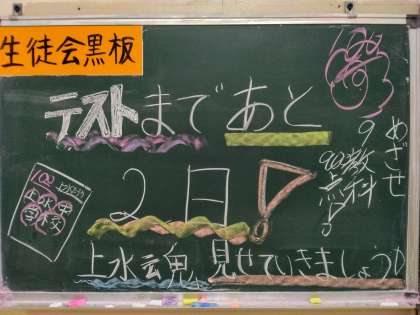 生徒会黒板
テストまであと
2日!
めざせ
9教科
900点!
100
100
上水魂 見せていきましょう